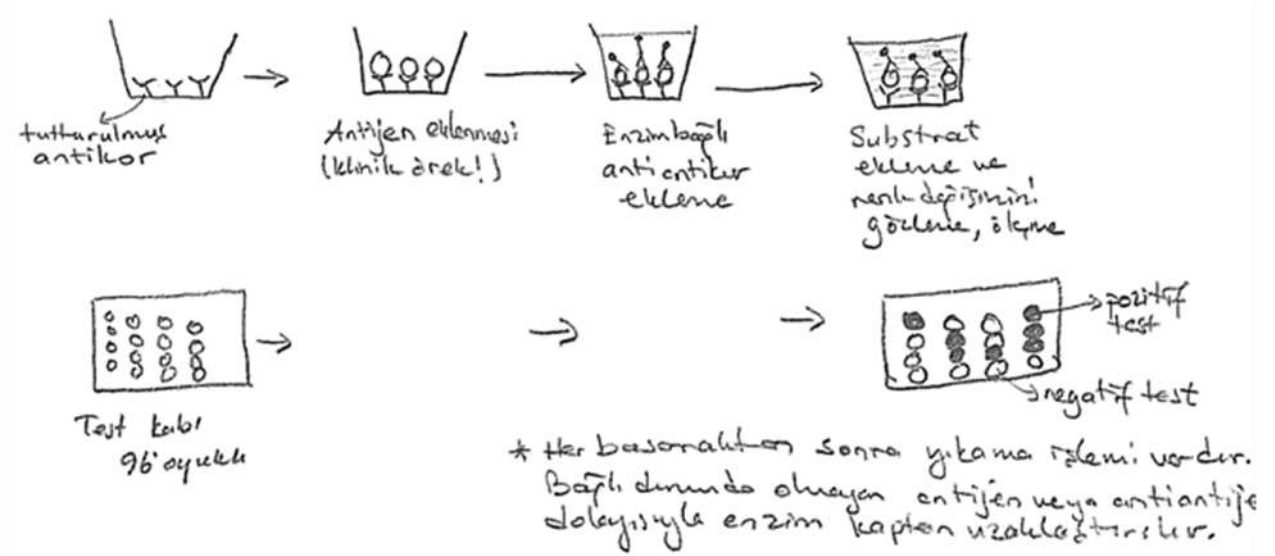 tutturulmuş
antikor
Antijen eklenmesi
(klinik örnek!)
Enzim bağlı
antiantikor
ekleme
Substrat
ekleme ve
renk değişimini
gözleme, ölçme
Test kabı
96 oyuklu
pozitif
test
negatif test
* Her basamaktan sonra yıkama işlemi vardır.
Bağlı durumda olmayan antijen veya antiantije
dolayısıyla enzim kaptan uzaklaştırılır.